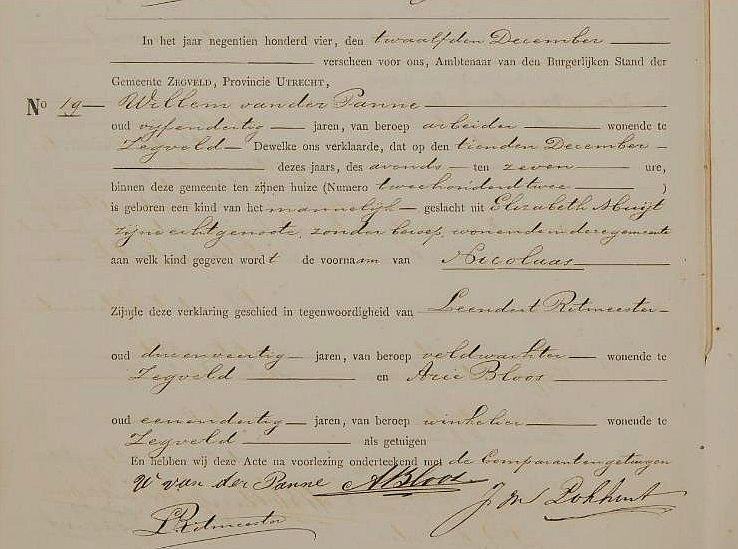 In het jaar negentien honderd vier, den twaalfden December
verscheen voor ons, Ambtenaar van den Burgerlijken Stand der
Gemeente ZEGVELD, Provincie UTRECHT,
No 19 Willem van der Panne
oud vijfendertig jaren, van beroep arbeider wonende te
Zegveld Dewelke ons verklaarde, dat op den tienden December
dezes jaars, des avonds ten zeven ure,
binnen deze gemeente ten zijnen huize (Numero tweehonderdtwee )
is geboren een kind van het mannelijk geslacht uit Elizabeth Muijt
zijne echtgenoote, zonder beroep, wonende in deze gemeente
aan welk kind gegeven wordt de voornaam van Nicolaas
Zijnde deze verklaring geschied in tegenwoordigheid van Leendert Ritmeester
oud drieenveertig jaren, van beroep veldwachter wonende te
Zegveld en Arie Bloos
oud eenendertig jaren, van beroep winkelier wonende te
Zegveld als getuigen
En hebben wij deze Acte na voorlezing onderteekend met de Comparant en getuigen
W van der Panne ABloos
LRitmeester